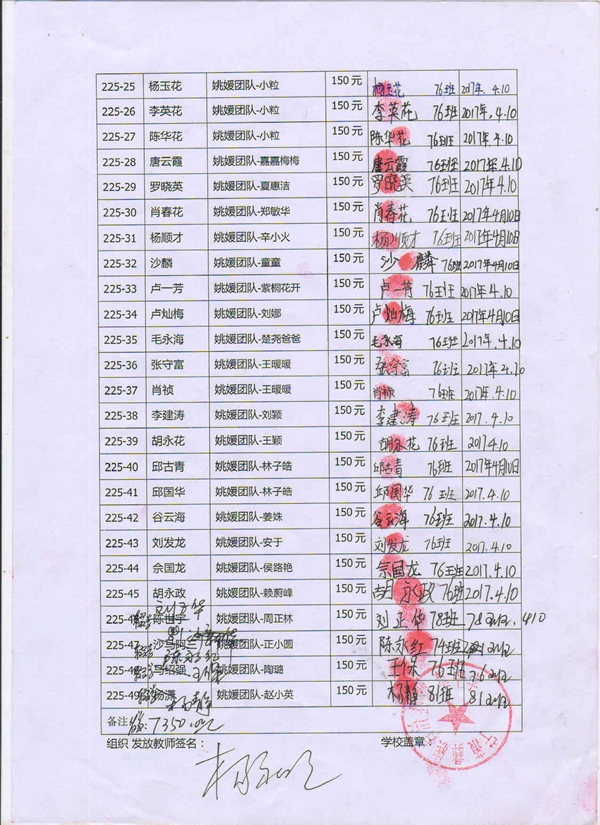 225-25 杨玉花 姚媛团队-小粒 150元 杨玉花 76班 2017年.4.10
225-26 李英花 姚媛团队-小粒 150元 李英花 76班 2017年.4.10
225-27 陈华花 姚媛团队-小粒 150元 陈华花 76班 2017年.4.10
225-28 唐云霞 姚媛团队-嘉嘉梅梅 150元 唐云霞 76班 2017年4.10
225-29 罗晓英 姚媛团队-夏惠洁 150元 罗晓英 76班 2017年4.10
225-30 肖春花 姚媛团队-郑敏华 150元 肖春花 76班 2017年4月10日
225-31 杨顺才 姚媛团队-辛小火 150元 杨顺才 76班 2017年4月10日
225-32 沙麟 姚媛团队-童童 150元 沙麟 76班 2017年4月10日
225-33 卢一芳 姚媛团队-紫桐花开 150元 卢一芳 76班 2017年.4.10
225-34 卢灿梅 姚媛团队-刘娜 150元 卢灿梅 76班 2017年4月10日
225-35 毛永海 姚媛团队-楚尧爸爸 150元 毛永海 76班 2017年.4.10
225-36 张守富 姚媛团队-王暖暖 150元 张守富 76班 2017年
225-37 肖祯 姚媛团队-王暖暖 150元 肖祯 76班 2017年.4.10
225-38 李建涛 姚媛团队-刘颖 150元 李建涛 76班 2017.4.10
225-39 胡永花 姚媛团队-王颖 150元 胡永花 76班 2017.4.10
225-40 邱古青 姚媛团队-林子皓 150元 邱古青 76班 2017年4月10日
225-41 邱国华 姚媛团队-林子皓 150元 邱国华 76班 2017.4.10
225-42 谷云海 姚媛团队-姜姝 150元 谷云海 76班 2017.4.10
225-43 刘发龙 姚媛团队-安于 150元 刘发龙 76班 2017.4.10
225-44 佘国龙 姚媛团队-侯路艳 150元 佘国龙 76班 2017.4.10
225-45 胡永政 姚媛团队-赖蔚峰 150元 胡永政 76班 2017.4.10
刘正华
225-4 陈世宇 姚媛团队-周正林 150元 刘正华 78班
225-47 沙马阿兰 姚媛团队-正小圆 150元 陈永红 74班
陈永红
225-48 马绍强 姚媛团队-陶璐 150元 王保 76班
225-49 杨潇 姚媛团队-赵小英 150元 杨静 81班
杨静
备注 7350.元
组织 发放教师签名： 学校盖章：